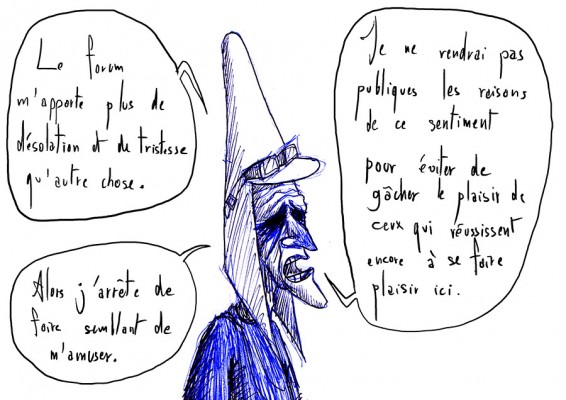 Le forum
m'apporte plus de
désolation et de tristesse
qu'autre chose.
Je ne rendrai pas
publiques les raisons
de ce sentiment
pour éviter de
gâcher le plaisir de
ceux qui réussissent
encore à se faire
plaisir ici.
Alors j'arrête de
faire semblant de
m'amuser.